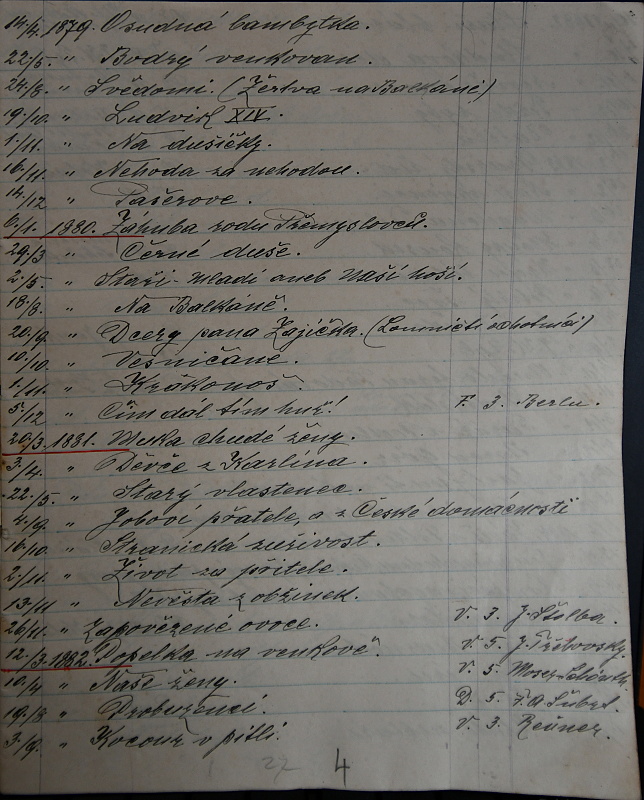 14/4. 1879. Osudná bambytka.
22/5. " Bodrý venkovan.
24/8. " Svědomí. (Žertva na Balkáně)
19/10. " Ludvík XIV.
1/11. " Na dušičky.
16/11. " Nehoda za nehodou.
14/12 " Pašerove.
6/1. 1880. Záhuba rodu Přemyslovců.
29/3 " Černé duše.
2/5. " Staři-Mladí aneb Naší hoši.
18/8. " Na Balkáně.
20/9. " Dcery pana Zajíčka. (Lomničtí odhotníci)
10/10. " Vesničané.
1/11. " Krákonoš.
5/12 " Čím dál tím huř! F. 3. Berla.
20/3. 1881. Muka chudé ženy.
3/4. " Děvče z Karlína.
22/5. " Starý vlastenec.
4/9. " Jobovi přatele, a z České domácnosti
16/10. " Stranická zuřivost.
2/11. " Život za přitele.
13/11 " Nevěsta z obžinek.
26/11. " Zapovězené ovoce. V. 3. J. Štolba.
12/3. 1882. Popelka na venkově. V. 5. J.
10/4 " Naše ženy. V. 5 Moser
19/8 " Probuzenci. D. 5 F. A. Šubrt.
3/9. " Kocour v pitli. V. 3.
27 4